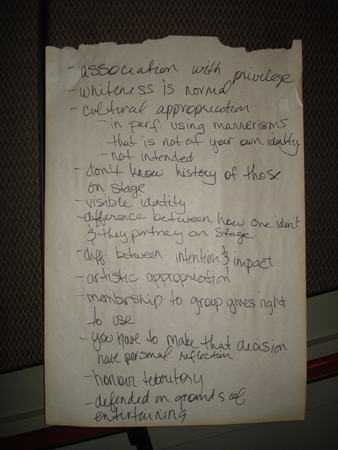 - association with privilege
- whiteness is normal
- cultural appropriation
- in perf. using mannerisms
that is not of your own identity
- not intended
- don't know history of those
on stage
- visible identity
- difference between how one ident
& they portray on stage
- diff between intention & impact
- artistic appropriation
- membership to group gives right
to use
- you have to make that decision
have personal reflection
- honour teboutory
- defended on grounds of
entertaining